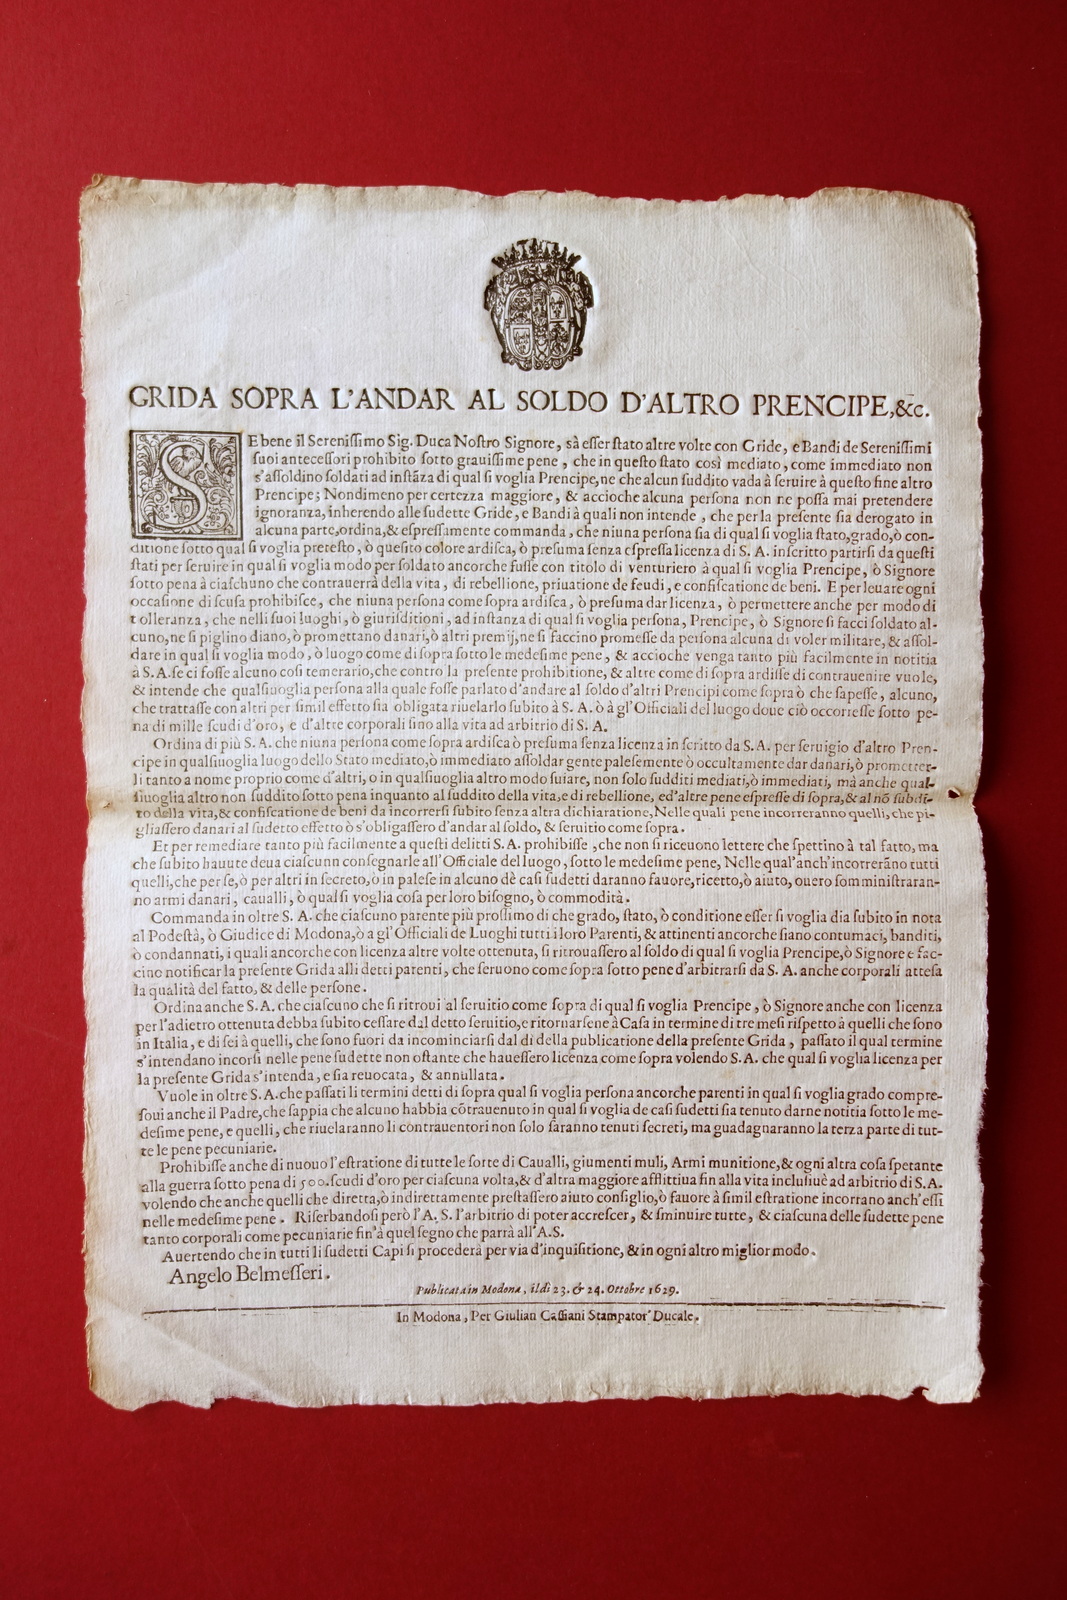 GRIDA SOPRA L'ANDAR AL SOLDO D'ALTRO PRENCIPE,&c.
SEbene il Sereniſſimo Sig. Duca Noſtro Signore, sà eſſer ſtato altre volte con Gride, e Bandi de Sereniſſimi
ſuoi anteceſſori prohibito ſotto grauiſſime pene, che in queſto ſtato così mediato, come immediato non
s'aſſoldino ſoldati ad inſtãza di qual ſi voglia Prencipe, ne che alcun ſuddito vada à ſeruire à queſto fine altro
Prencipe; Nondimeno per certezza maggiore, & accioche alcuna perſona non ne poſſa mai pretendere
ignoranza, inherendo alle ſudette Gride, e Bandi à quali non intende, che per la preſente ſia derogato in
alcuna parte, ordina, & eſpreſſamente commanda, che niuna perſona ſia di qual ſi voglia ſtato, grado, ò con-
ditione ſotto qual ſi voglia preteſto, ò queſito colore ardiſca, ò preſuma ſenza eſpreſſa licenza di S. A. inſcritto partirſi da queſti
ſtati per ſeruire in qual ſi voglia modo per ſoldato ancorche fuſſe con titolo di venturiero à qual ſi voglia Prencipe, ò Signore
ſotto pena à ciaſchuno che contrauerrà della vita, di rebellione, priuatione de feudi, e confiſcatione de beni. E per leuare ogni
occaſione di ſcuſa prohibiſce, che niuna perſona come ſopra ardiſca, ò preſuma dar licenza, ò permettere anche per modo di
tolleranza, che nelli ſuoi luoghi, ò giuriſditioni, ad inſtanza di qual ſi voglia perſona, Prencipe, ò Signore ſi facci ſoldato al-
cuno, ne ſi piglino diano, ò promettano danari, ò altri premij, ne ſi faccino promeſſe da perſona alcuna di voler militare, & aſſol-
dare in qual ſi voglia modo, ò luogo come di ſopra ſotto le medeſime pene, & accioche venga tanto più facilmente in notitia
à S.A. ſe ci foſſe alcuno coſi temerario, che contro la preſente prohibitione, & altre come di ſopra ardiſſe di contrauenire vuole,
& intende che qualſiuoglia perſona alla quale foſſe parlato d'andare al ſoldo d'altri Prencipi come ſopra ò che ſapeſſe, alcuno,
che trattaſſe con altri per ſimil effetto ſia obligata riuelarlo ſubito à S. A. ò à gl'Officiali del luogo doue ciò occorreſſe ſotto pe-
na di mille ſcudi d'oro, e d'altre corporali ſino alla vita ad arbitrio di S. A.
Ordina di più S. A. che niuna perſona come ſopra ardiſca ò preſuma ſenza licenza in ſcritto da S. A. per ſeruigio d'altro Pren-
cipe in qualſiuoglia luogo dello Stato mediato, ò immediato aſſoldar gente paleſemente ò occultamente dar danari, ò prometter-
li tanto a nome proprio come d'altri, o in qualſiuoglia altro modo ſuiare, non ſolo ſudditi mediati, ò immediati, ma anche qual-
ſiuoglia altro non ſuddito ſotto pena inquanto al ſuddito della vita, e di rebellione, ed'altre pene eſpreſſe di ſopra, & al nõ ſubdi-
to della vita, & confiſcatione de beni da incorrerſi ſubito ſenza altra dichiaratione, Nelle quali pene incorreranno quelli, che pi-
gliaſſero danari al ſudetto effetto ò s'obligaſſero d'andar al ſoldo, & ſeruitio come ſopra.
Et per remediare tanto più facilmente a queſti delitti S. A. prohibiſſe, che non ſi riceuono lettere che ſpettino à tal fatto, ma
che ſubito hauute deua ciaſcunn conſegnarle all'Officiale del luogo, ſotto le medeſime pene, Nelle qual'anch'incorrerãno tutti
quelli, che per ſe, ò per altri in ſecreto, ò in paleſe in alcuno dè caſi ſudetti daranno fauore, ricetto, ò aiuto, ouero ſomminiſtraran-
no armi danari, caualli, ò qualſi voglia coſa per loro biſogno, ò commodità.
Commanda in oltre S. A. che ciaſcuno parente più proſſimo di che grado, ſtato, ò conditione eſſer ſi voglia dia ſubito in nota
al Podeſtà, ò Giudice di Modona, ò a gl'Officiali de Luoghi tutti i loro Parenti, & attinenti ancorche ſiano contumaci, banditi,
ò condannati, i quali ancorche con licenza altre volte ottenuta, ſi ritrouaſſero al ſoldo di qual ſi voglia Prencipe, ò Signore e fac-
cino notificar la preſente Grida alli detti parenti, che ſeruono come ſopra ſotto pene d'arbitrarſi da S. A. anche corporali atteſa
la qualità del fatto, & delle perſone.
Ordina anche S. A. che ciaſcuno che ſi ritroui al ſeruitio come ſopra di qual ſi voglia Prencipe, ò Signore anche con licenza
per l'adietro ottenuta debba ſubito ceſſare dal detto ſeruitio, e ritornarſene à Caſa in termine di tre meſi riſpetto à quelli che ſono
in Italia, e di ſei à quelli, che ſono fuori da incominciarſi dal di della publicatione della preſente Grida, paſſato il qual termine
s'intendano incorſi nelle pene ſudette non oſtante che haueſſero licenza come ſopra volendo S. A. che qual ſi voglia licenza per
la preſente Grida s'intenda, e ſia reuocata, & annullata.
Vuole in oltre S. A. che paſſati li termini detti di ſopra qual ſi voglia perſona ancorche parenti in qual ſi voglia grado compre-
ſoui anche il Padre, che ſappia che alcuno habbia cõtrauenuto in qual ſi voglia de caſi ſudetti ſia tenuto darne notitia ſotto le me-
deſime pene, e quelli, che riuelaranno li contrauentori non ſolo ſaranno tenuti ſecreti, ma guadagnaranno la terza parte di tut-
te le pene pecuniarie.
Prohibiſſe anche di nuouo l'eſtratione di tutte le ſorte di Caualli, giumenti muli, Armi munitione, & ogni altra coſa ſpetante
alla guerra ſotto pena di 500. ſcudi d'oro per ciaſcuna volta, & d'altra maggiore afflittiua fin alla vita incluſiuè ad arbitrio di S. A.
volendo che anche quelli che diretta, ò indirettamente preſtaſſero aiuto conſiglio, ò fauore à ſimil eſtratione incorrano anch'eſſi
nelle medeſime pene. Riſerbandoſi però l'A. S. l'arbitrio di poter accreſcer, & ſminuire tutte, & ciaſcuna delle ſudette pene
tanto corporali come pecuniarie fin'à quel ſegno che parrà all'A.S.
Auertendo che in tutti li ſudetti Capi ſi procederà per via d'inquiſitione, & in ogni altro miglior modo.
Angelo Belmeſſeri.
Publicata in Modona, il dì 23. & 24. Ottobre 1629.
In Modona, Per Giulian Caſſiani Stampator Ducale.